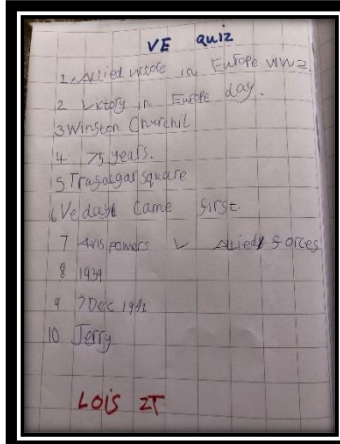 VE quiz
1. Allied victory in Europe WW2.
2 Victory in Europe day.
3 Winston Churchil
4 75 years.
5 Trafalgar Square
6 Ve day came first.
7 Axis powers v Allied forces
8 1939
9 7 Dec 1941
10 Jerry
LOIS 2T